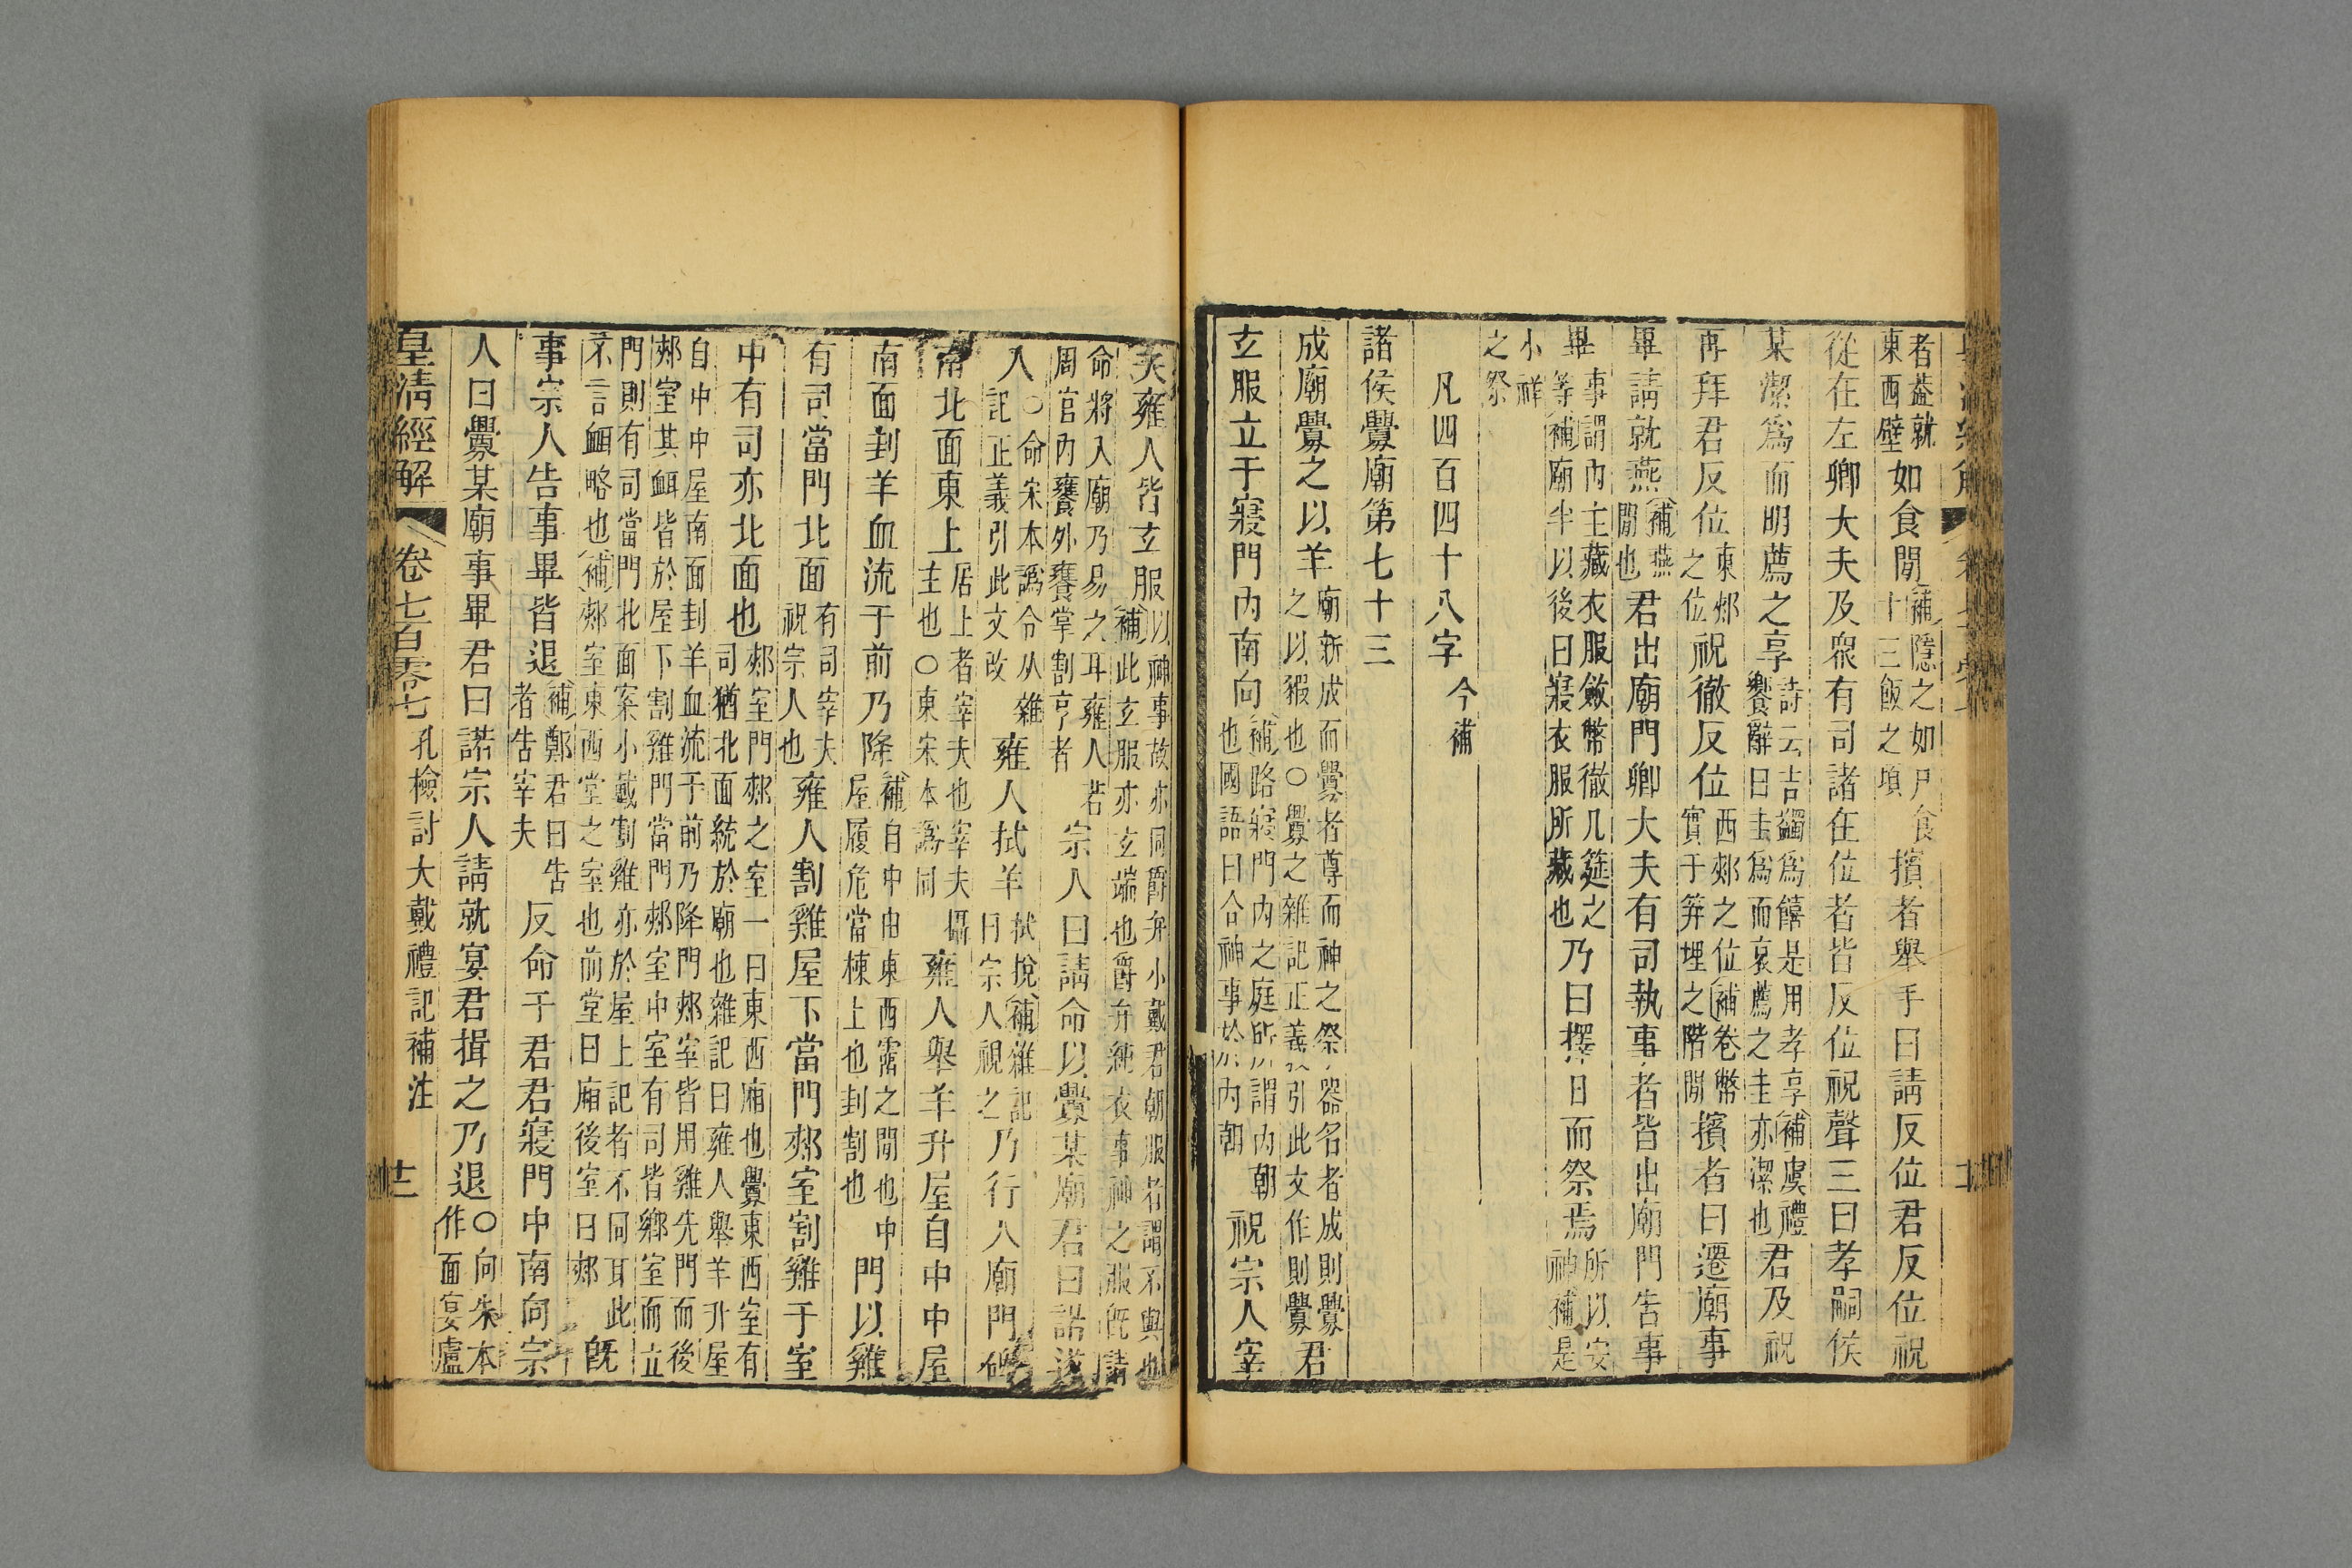 者蓋就東西壁如食閒補隱之如尸食十三飯之頃擯者舉手曰請反位君反位祝
從在左卿大夫及眾有司諸在位者皆反位祝聲三曰孝嗣侯
某潔爲而明薦之享詩云吉蠲爲饎是用孝享補虞禮饗辭曰圭爲而哀薦之圭亦潔也君及祝
再拜君反位東郟之位祝徹反位西郟之位補卷幣實于筓埋之階閒擯者曰遷廟事
畢請就燕補燕閒也君出廟門卿大夫有司執事者皆出廟門告事
畢事謂內主藏衣服斂幣徹几筵之等補廟半以後曰寢衣服所藏也乃曰擇日而祭焉所以安神補是
小祥之祭
凡四百四十八字今補
諸侯釁廟第七十三
成廟釁之以羊廟新成而釁者尊而神之祭器名者成則釁之以豭也〇釁之雜記正義引此文作則釁君
玄服立于寢門內南向補路寢門內之庭所謂內朝也國語曰合神事於內朝祝宗人宰
夫雍人皆玄服以神事故亦同爵弁小戴君朝服者謂不與也補此玄服亦玄端也爵弁純衣事神之服旣請
命將入廟乃易之耳雍人若周官內饔外饔掌割亨者宗人曰請命以釁某廟君曰諾遂
入〇命宋本譌令从雜記正義引此文改雍人拭羊拭捝補雜記曰宗人視之乃行入廟門碑
南北面東上居上者宰夫也宰夫攝主也〇東宋本譌同雍人舉羊升屋自中中屋
南面刲羊血流于前乃降補自中由東西霤之閒也中屋履危當棟上也刲割也門以雞
有司當門北面有司宰夫祝宗人也雍人割雞屋下當門郟室割雞于室
中有司亦北面也郟室門郟之室一曰東西廂也釁東西室有司猶北面統於廟也雜記曰雍人舉羊升屋
自中中屋南面刲羊血流于前乃降門郟室皆用雞先門而後郟室其衈皆於屋下割雞門當門郟室中室有司皆鄉室而立
門則有司當門北面案小戴割雞亦於屋上記者不同耳此不言衈略也補郟室東西堂之室也前堂曰廂後室曰郟旣
事宗人告事畢皆退補鄭君曰告者告宰夫反命于君君寢門中南向宗
人曰釁某廟事畢君曰諾宗人請就宴君揖之乃退〇向朱本作面宴盧
皇清經解 卷七百零七 孔檢討大戴禮記補注